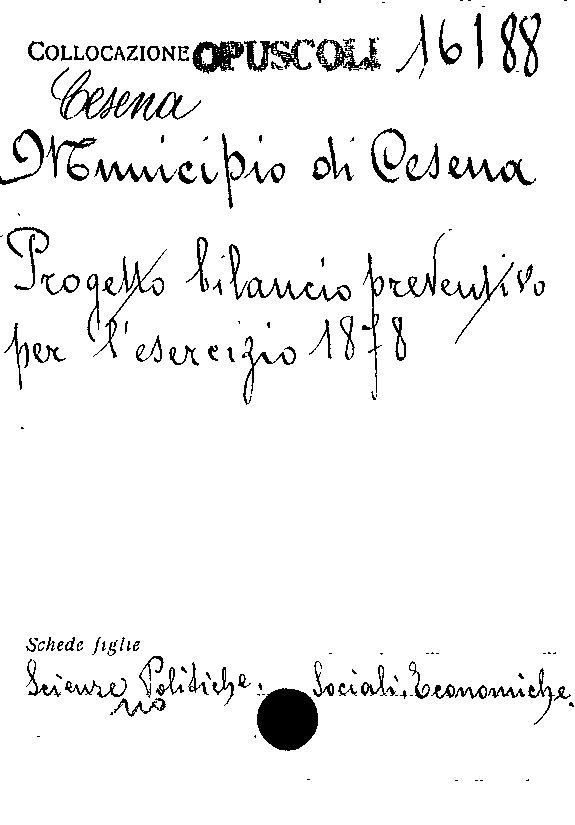 COLLOCAZIONE OPUSCOLI 16188
Cesena
Municipio di Cesena
Progetto bilancio preventivo
per l'esercizio 1878
Schede figlie
Scienze Politiche. Sociali. Economiche.
no